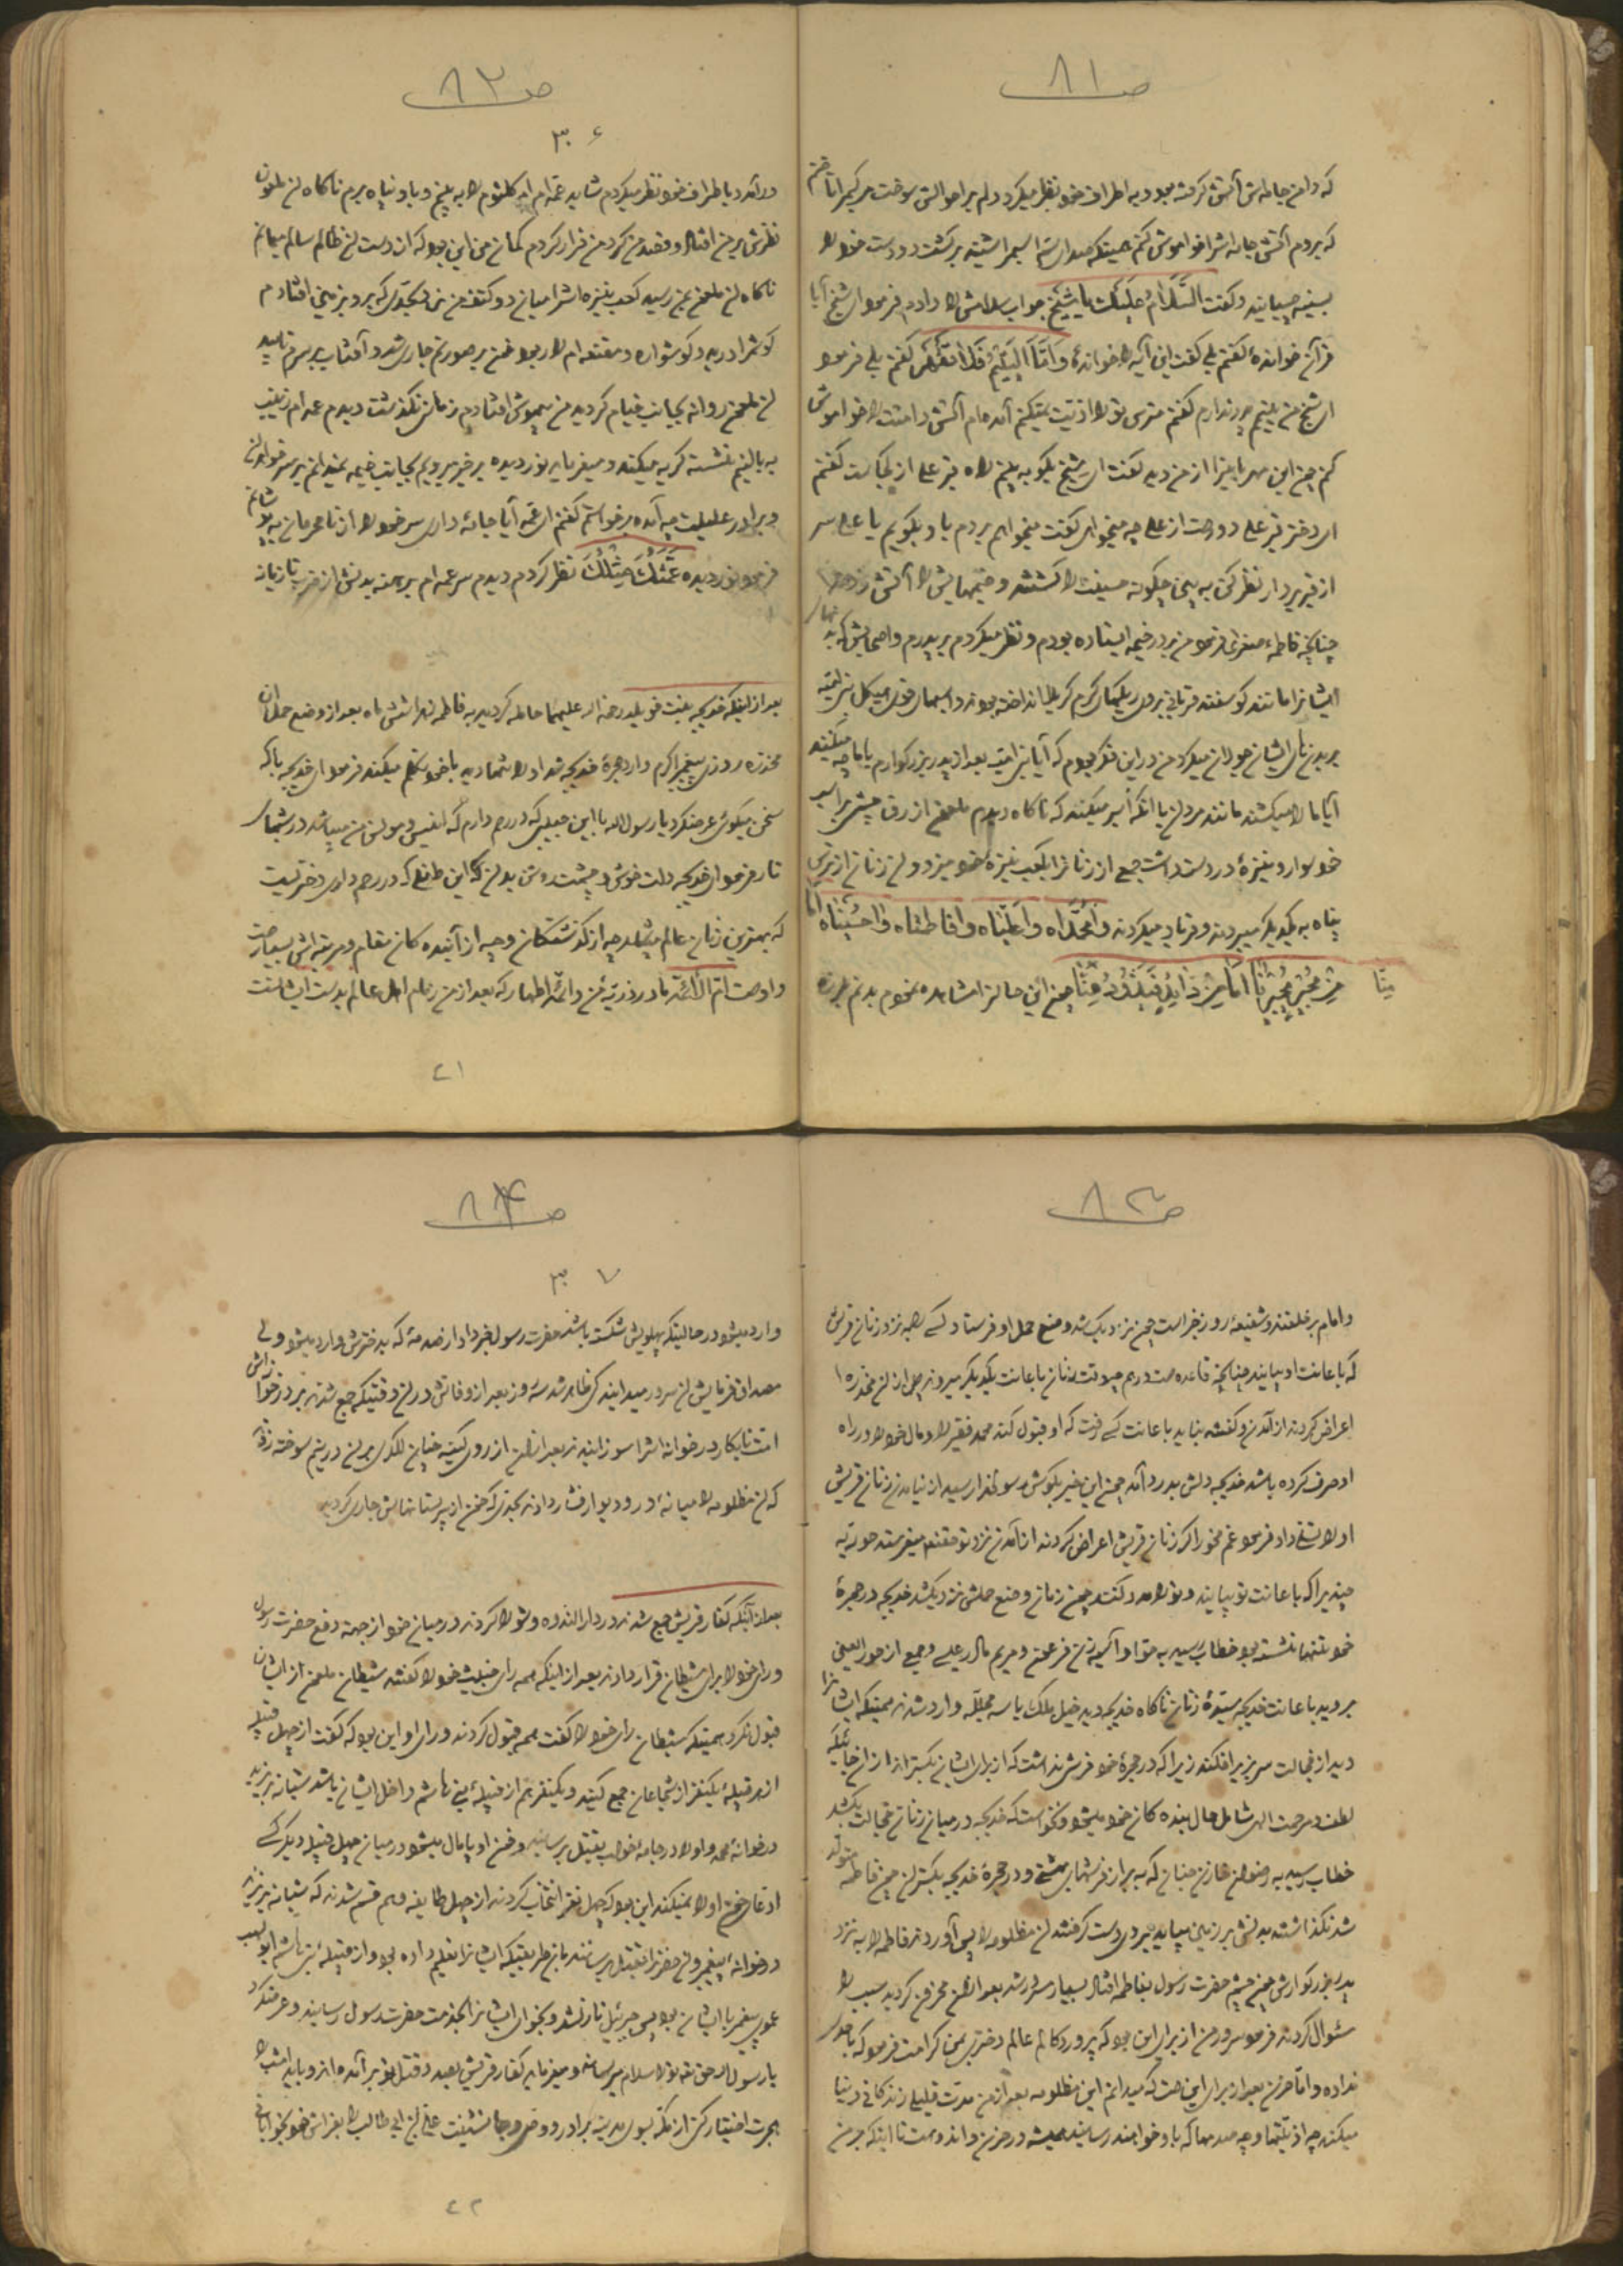 ص ۸۱
که دامن جامه‌اش آتش گرفته بود و به اطراف خود نظر میکرد و دلم بر احوالش سوخت
که بروم آتش جامه اشرا خواموش کنم همینکه صدای سم اسبم را شنید برگشت و دست خود را
بسینه چسپانید و گفت السَّلامُ عَلَیكَ یا شَیْخ جواب سلامش را دادم فرمود ای شیخ آیا
قرآن خوانده گفتم بلی گفت این آیه را خوانده وَاَمَّا الیَتیمَ فَلا تَقْهَر گفتم بلی فرمود
ای شیخ من یتیمم پدر ندارم گفتم مترس تو را اذیت نمیکنم آمده‌ام آتش دامنت را خواموش
کنم چون این مهربانیرا از من دید گفت ای شیخ بگو به بینم راه قبر علی از کجاست گفتم
ای دختر قبر علی دور است از علی چه میخواهی گفت میخواهم بروم با و بگویم یا علی سر
از قبر بردار نظر کن به بین چگونه حسینت را کشتند و خیمهایش را آتش زدند
چنانچه فاطمهٔ صغری فرمود من بر در خیمه ایستاده بودم و نظر میکردم بر پدرم و اصحابش که بدنهای
ایشانرا مانند گوسفند قربانی بر روی ریگهای گرم کربلا انداخته بودند و اسبهای قوی هیکل بر
بدنهای ایشان جولان میکردند من در این فکر بودم که آیا بنی امیه بعد از پدر بزرگوارم با ما چه میکنند
آیا ما را میکشند مانند مردان یا آنکه اسیر میکنند که ناگاه دیدم ملعون ازرق چشمی بر اسب
خود سوار و نیزهٔ در دست داشت جمع از زنانرا بکعب نیزهٔ خود میزد و آن زنان از ترس
پناه به یکدیگر میبردند و فریاد میکردند وامُحَمَّداه واعَلِیّاه وافاطِمَتاه واحُسَیناه اَما
مِنْ مُجیرٍ یُجیرُنا اَما مِنْ ذائِدٍ یَذُودُ عَنّا چون این حالرا مشاهده نمودم بدنم بلرزه
ص ۸۲
۳۶
درآمد و باطراف خود نظر میکردم شاید عمه‌ام ام کلثوم را به بینم و باو پناه برم ناگاه آن ملعون
نظرش بر من افتاد و قصد من کرد من فرار کردم گمان من این بود که از دست آن ظالم سالم میمانم
ناگاه آن ملعون بمن رسید کعب نیزه اشرا میان دو کتف من زد بحدی که بر رو بزمین افتادم
گوشم را درید و گوشواره و مقنعه ام را ربود خون بر صورتم جاری شد و آفتاب بر سرم تابید
آن ملعون روانه بجانب خیام گردید من بیهوش افتادم زمانی نگذشت دیدم عمه‌ام زینب
به بالینم نشسته گریه میکند و میفرماید نور دیده برخیز برویم بجانب خیمه نمیدانم بر سر خواهران
و برادر علیلت چه آمده برخواستم گفتم ای عمه آیا جامهٔ داری سر خود را از نامحرمان بپوشانم
فرمود نور دیده عَمَّتُكَ مِثْلُكَ نظر کردم دیدم سر عمه‌ام برهنه بدنش از ضرب تازیانه
بعد از اینکه خدیجه بنت خویلد رحمة الله علیهما حامله گردید به فاطمه زهرا شش ماه بعد از وضع حمل آن
مخدره روزی پیغمبر اکرم وارد حجرهٔ خدیجه شد او را تنها دید با خود تکلم میکند فرمود ای خدیجه با که
سخن میگوئی عرضکرد یا رسول الله با این جنینی که در رحم دارم که انیس و مونس من میباشد در شبهای
تار فرمود ای خدیجه دلت خوش و چشمت روشن بدان که این طفلی که در رحم داری دختریست
که بهترین زنان عالم میباشد چه از گذشتگان و چه از آینده گان مقام و مرتبه اش بسیار است
و اوست اُمُّ الاَئِمَّه مادر ذریهٔ من و ائمهٔ اطهار که بعد از من زمام اهل عالم بدست ایشانست
۴۱
ص ۸۳
و امام بر خلقند و شفیعهٔ روز جزا است چون نزدیک شد وضع حمل او فرستاد کسی را به نزد زنان قریش
که باعانت او بیایند چنانچه قاعده است در هم چو وقت زنان باعانت یکدیگر میروند پس از آن مخدره
اعراض کردند از آمدن و گفتند بیاید باعانت کسی نرفت که او قبول کند محمد فقیر را و مال خود را در راه
او صرف کرده باشد خدیجه دلش بدرد آمد چون این خبر بگوش رسول خدا رسید از نیامدن زنان قریش
او را تسلی داد فرمود غم مخور اگر زنان قریش اعراض کردند از آمدن نزد تو حقتعالی میفرستد حوریه
چند برا که باعانت تو بیایند و تو را مدد کنند چون زمان وضع حملش نزدیک شد خدیجه در حجرهٔ
خود تنها نشسته بود خطاب رسید به حوا و آسیه زن فرعون و مریم مادر عیسی و جمع از حورالعین
بروید باعانت خدیجه سیدهٔ زنان ناگاه خدیجه دید خیل ملک با سه مجلله وارد شدند همینکه ایشانرا
دید از خجالت سر بزیر افکند زیرا که در حجرهٔ خود فرش نداشت که از برای ایشان بگستراند از آنجائیکه
لطف و مرحمت الهی شامل حال بنده گان خود میشود نخواست که خدیجه در میان زنان خجالت بکشد
خطاب رسید به رضوان خازن جنان که به بر از فرشهای بهشتی و در حجرهٔ خدیجه بگستران چون فاطمه متولد
شد نگذاشتند بدنش بر زمین بیاید بروی دست گرفتند آن مظلومه را پس آوردند فاطمه را به نزد
پدر بزرگوارش چون چشم حضرت رسول بفاطمه افتاد بسیار مسرور شد بعد از آن محزون گردید سبب را
سئوال کردند فرمود سرور من از برای این بود که پروردگار عالم دختری بمن کرامت فرمود که باحدی
نداده و اما حزن بعد از برای این است که میدانم این مظلومه بعد از من مدت قلیلی زندگانی در دنیا
میکند چه اذیتها و چه صدمها که باو خواهند رسانید همیشه در حزن و اندوه است تا اینکه بر من
ص ۸۴
۳۷
وارد میشود در حالتیکه پهلویش شکسته باشد حضرت رسول خبر داد از صدمهٔ که بدخترش وارد میشود ولی
مصداق فرمایش آن سرور میدانید کی ظاهر شد سه روز بعد از وفاتش در آن وقتیکه جمع شدند بر در خوانه‌اش
امت نابکار در خوانه اشرا سوزانیدند بعد از آن از روی کینه چنان لگدی بر آن در نیم سوخته زد
که آن مظلومه را میانهٔ در و دیوار فشار دادند بحدی که خون از پستانهایش جاری گردید
بعد از آنکه کفار قریش جمع شدند در دار الندوه و شورا کردند در میان خود از جهت دفع حضرت رسول
و رای خود را برای شیطان قرار دادند بعد از اینکه همه رای خبیث خود را گفتند شیطان ملعون از ایشان
قبول نکرد همینکه شیطان رای خود را گفت همه قبول کردند و رای او این بود که گفت از چهل قبیله
از هر قبیلهٔ یکنفر از شجاعان جمع کنید و یکنفر هم از قبیلهٔ بنی هاشم داخل ایشان باشد شبانه بریزید
در خوانهٔ محمد و او را در جامهٔ خواب بقتل برسانید و خون او پامال میشود در میان چهل قبیله دیگر کسی
ادعای خون او را نمیکند این بود که چهل نفر انتخاب کردند از چهل طایفه و هم قسم شدند که شبانه بریزند
در خوانهٔ پیغمبر و آن حضرترا بقتل برسانند بآن طریقیکه ایشانرا تعلیم داده بود و از قبیلهٔ بنی هاشم ابو لهب
عموی پیغمبر با ایشان بود پس جبرئیل نازل شد و نجوای ایشانرا بخدمت حضرت رسول رسانید و عرضکرد
یا رسول الله حق تعالی تو را سلام میرساند و میفرماید کفار قریش بقصد قتل تو بر آمده‌اند و باید امشب را
هجرت اختیار کنی از مکه بسوی مدینه برادر و وصی و جانشینت علی ابن ابی طالب را بفراش خود بخوابانی
۴۲